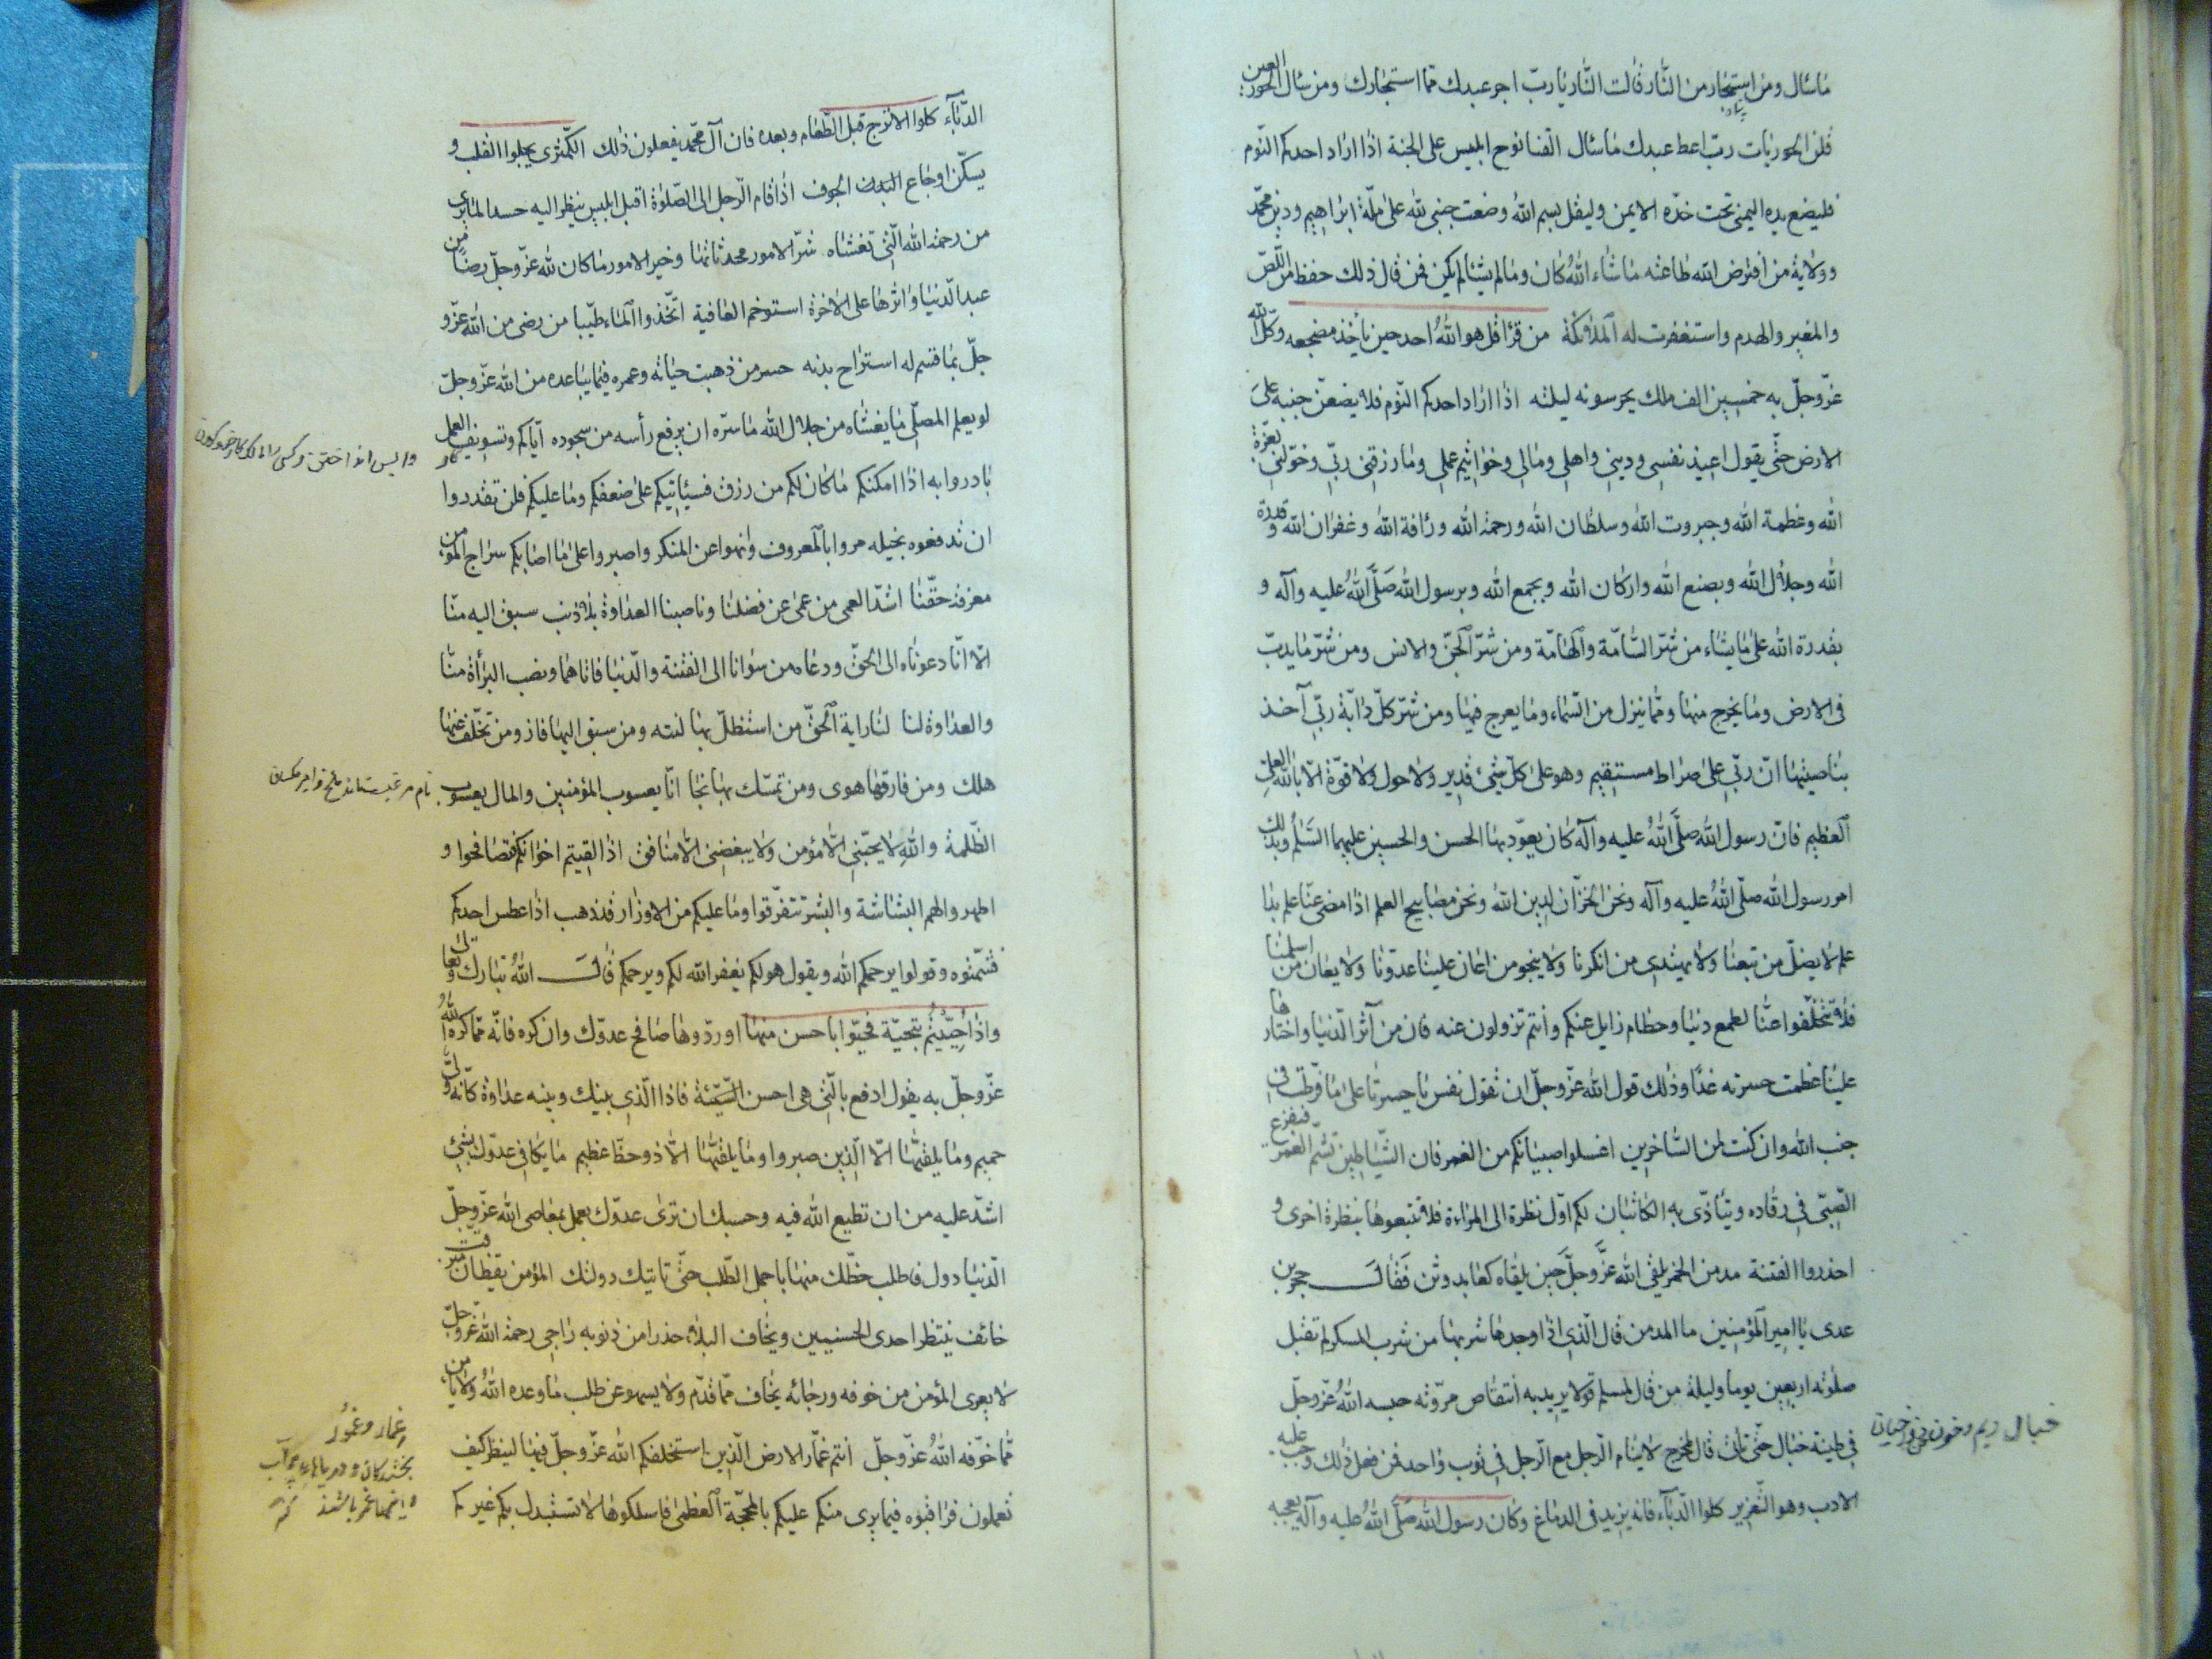 ما سئال ومن استجار من النّار قالت النّار يا ربّ اجر عبدك ممّا استجارك ومن سئال الحور العين
قلن الحوريات ربّ اعط عبدك ما سئال الغنا نوح ابليس على الجنة اذا اراد احدكم النّوم
فليضع يده اليمنى تحت خدّه الايمن وليقل بسم الله وضعت جنبى لله على ملّة ابراهيم ودين محمّد
وولاية من افترض الله طاعته ما شاء الله كان وما لم يشئا لم يكن فمن قال ذلك حفظ من اللّصّ
والمغير والهدم واستغفرت له الملائكة من قرأ قل هو الله احد حين يأخذ مضجعه وكّل الله
عزّ وجلّ به خمسين الف ملك يحرسونه ليلته اذا اراد احدكم النّوم فلا يضعنّ جنبه على
الارض حتّى يقول اعيذ نفسى ودينى واهلى ومالى وخواتيم عملى وما رزقنى ربّى وخوّلنى بعزّة
الله وعظمة الله وجبروت الله وسلطان الله ورحمة الله ورأفة الله وغفران الله وقدرة
الله وجلال الله وبصنع الله واركان الله وبجمع الله وبرسول الله صلّى الله عليه وآله و
بقدرة الله على ما يشاء من شرّ السّامّة والهامّة ومن شرّ الجنّ والانس ومن شرّ ما يدبّ
فى الارض وما يخرج منها وممّا ينزل من السّماء وما يعرج فيها ومن شرّ كلّ دابّة ربّى آخذ
بناصيتها انّ ربّى على صراط مستقيم وهو على كلّ شئ قدير ولا حول ولا قوّة الّا بالله العلىّ
العظيم فانّ رسول الله صلّى الله عليه وآله كان يعوّد بها الحسن والحسين عليهما السّلم وبذلك
امر رسول الله صلّى الله عليه وآله ونحن الخزّان لدين الله ونحن مصابيح العلم اذا مضى عنّا علم بدا
علم لا يضلّ من تبعنا ولا يهتدى من انكرنا ولا ينجو من اعان علينا عدوّنا ولا يعان من اسلمنا
فلا تتخلّفوا عنّا لطمع دنيا وحطام زايل عنكم وانتم تزولون عنه فان من آثر الدّنيا واختارها
علينا عظمت حسرته غدا وذلك قول الله عزّ وجلّ ان تقول نفس يا حسرتا على ما فرّطت فى
جنب الله وان كنت لمن السّاخرين اغسلوا صبيانكم من الغمر فان الشّياطين تشمّ الغمر فيفزع
الصّبىّ فى رقاده ويتأذّى به الكاتبان لكم اوّل نظرة الى المراءة فلا تتبعوها بنظرة اخرى و
احذروا الفتنة مدمن الخمر يلقى الله عزّ وجلّ حين يلقاه كعابد وثن فقال حجر بن
عدى يا امير المؤمنين ما المدمن قال الّذى اذا وجدها شربها من شرب المسكر لم تقبل
صلوته اربعين يوما وليلة من قال لمسلم قولا يريد به انتقاص مروّته حبسه الله عزّ وجلّ
فى طينة خبال حتّى يأتى قال المخرج لا ينام الرّجل مع الرّجل فى ثوب واحد فمن فعل ذلك وجب عليه
الادب وهو التّعزير كلوا الدّبّاء فانه يزيد فى الدماغ وكان رسول الله صلّى الله عليه وآله يعجبه
الدّبّاء كلوا الاترج قبل الطّعام وبعده فان آل محمّد يفعلون ذلك الكمّثرى يجلوا القلب و
يسكّن اوجاع الجوف اذا قام الرّجل الى الصّلوة اقبل ابليس ينظر اليه حسدا لما يرى
من رحمة الله الّتى تغشاه شرّ الامور محدثاتها وخير الامور ما كان لله عزّ وجلّ رضا من
عبد الدّنيا واثرها على الاخرة استوخم العافية اتّخذوا الماء طيّبا من رضى من الله عزّ و
جلّ بما قسم له استراح بدنه خسر من ذهبت حياته وعمره فيما يباعده من الله عزّ وجلّ
لو يعلم المصلّى ما يغشاه من جلال الله ما سرّه ان يرفع رأسه من سجوده ايّاكم وتسويف العمل
بادروا به اذا امكنكم ما كان لكم من رزق فسيأتيكم على ضعفكم وما عليكم فلن تقدروا
ان تدفعوه بحيلة مروا بالمعروف وانهوا عن المنكر واصبروا على ما اصابكم سراج المؤمن
معرفة حقّنا اشدّ العمى من عمى عن فضلنا وناصبنا العداوة بلا ذنب سبق اليه منّا
الّا انّا دعوناه الى الحقّ ودعاه من سوانا الى الفتنة والدّنيا فاتاهما ونصب البرأة منّا
والعداوة لنا لنا راية الحقّ من استظلّ بها كنته ومن سبق اليها فاز ومن تخلّف عنها
هلك ومن فارقها هوى ومن تمسّك بها نجا انا يعسوب المؤمنين والمال يعسوب
الظّلمة والله لا يحبّنى الّا مؤمن ولا يبغضنى الّا منافق اذا لقيتم اخوانكم فتصافحوا و
اظهروا لهم البشاشة والبشر تتفرّقوا وما عليكم من الاوزار قد ذهب اذا عطس احدكم
فشمّتوه وقولوا يرحمكم الله ويقول هو لكم يغفر الله لكم ويرحمكم قال الله تبارك وتعالى
واذا حيّيتم بتحيّة فحيّوا باحسن منها او ردّوها صافح عدوّك وان كره فانّه ممّا امر الله
عزّ وجلّ به يقول ادفع بالّتى هى احسن السّيّئة فاذا الّذى بينك وبينه عداوة كانّه ولىّ
حميم وما يلقّيها الّا الّذين صبروا وما يلقّيها الّا ذو حظّ عظيم ما يكافى عدوّك بشئ
اشدّ عليه من ان تطيع الله فيه وحسبك ان ترى عدوّك يعمل بمعاصى الله عزّ وجلّ
الدّنيا دول فاطلب حظّك منها باجمل الطّلب حتّى تأتيك دولتك المؤمن يقظان مترقّب
خائف ينتظر احدى الحسنيين ويخاف البلاء حذرا من ذنوبه راجى رحمة الله عزّ وجلّ
لا يعرى المؤمن من خوفه ورجائه يخاف ممّا قدّم ولا يسهو عن طلب ما وعده الله ولا يأمن
ممّا خوّفه الله عزّ وجلّ انتم عمّار الارض الّذين استخلفكم الله عزّ وجلّ فيها لينظر كيف
تعملون فراقبوه فيما يرى منكم عليكم بالمحجّة العظمى فاسلكوها لا تستبدل بكم غيركم